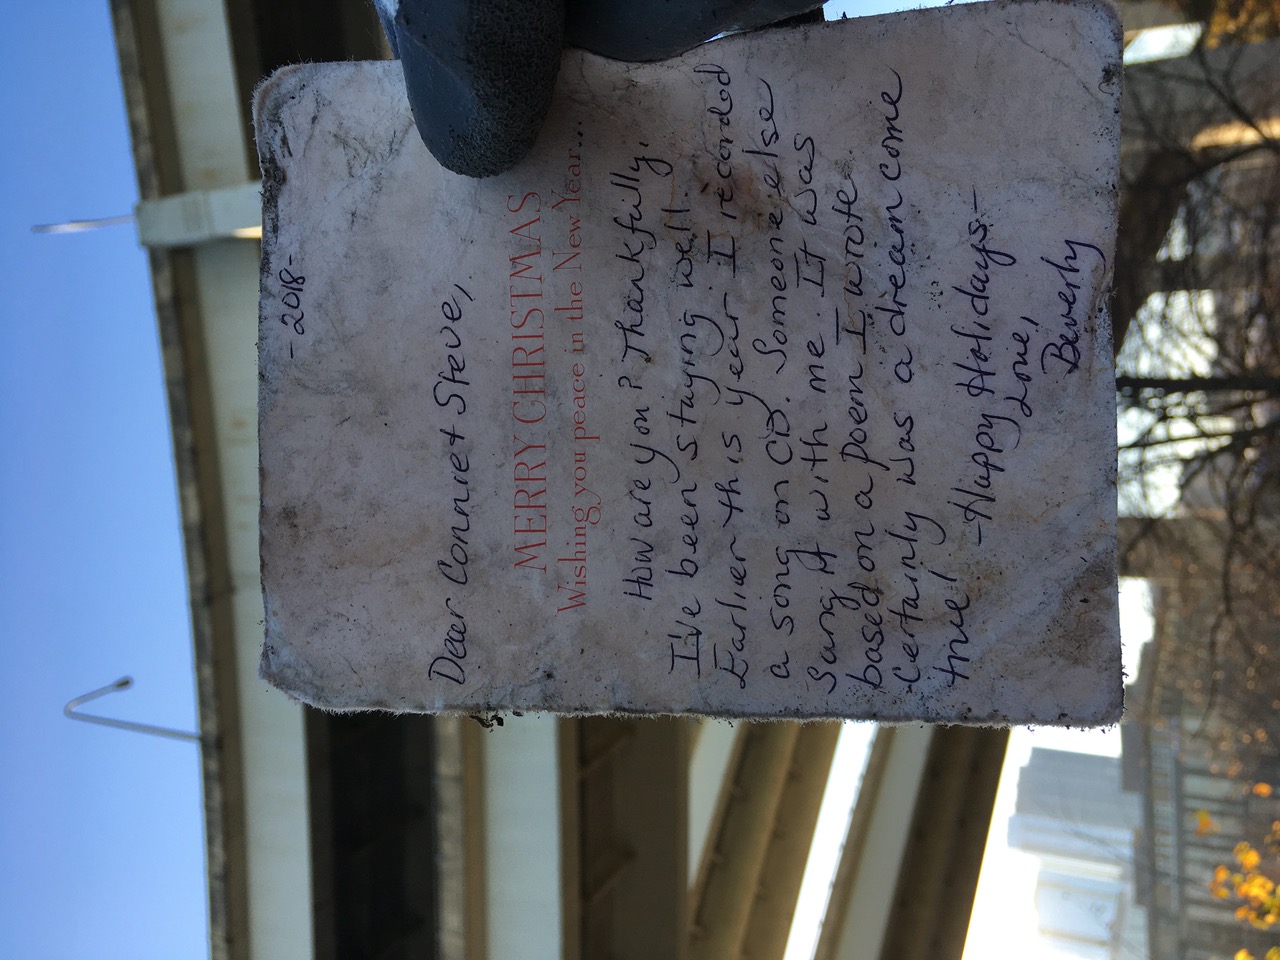 -2018-
Dear Connie + Steve,
MERRY CHRISTMAS
Wishing you peace in the New Year...
How are you? Thankfully,
I've been staying well.
Earlier this year I recorded
a song on CD. Someone else
sang it with me. It was
based on a poem I wrote.
Certainly was a dream come
true!
-Happy Holidays-
Love,
Beverly